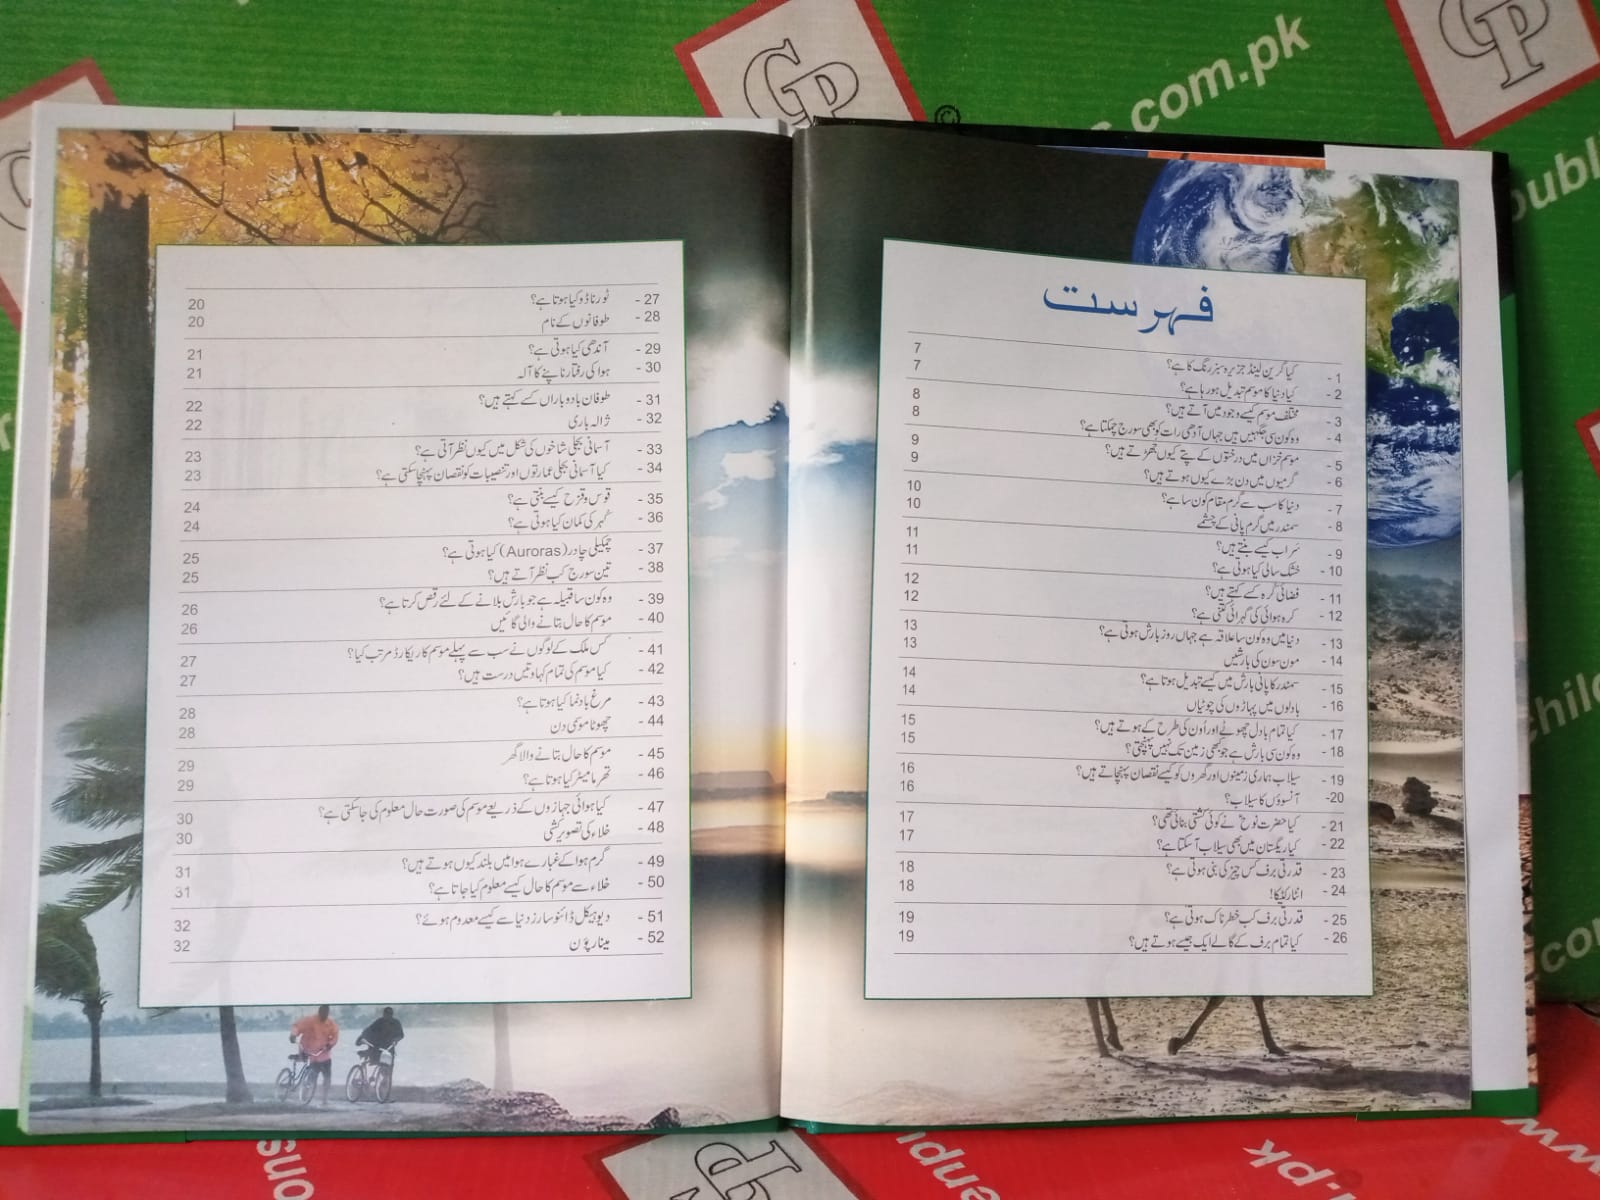 فہرست
1 - کیا گرین لینڈ جزیرہ سبز رنگ کا ہے؟ 7
2 - کیا دنیا کا موسم تبدیل ہو رہا ہے؟ 7
3 - مختلف موسم کیسے وجود میں آتے ہیں؟ 8
4 - وہ کون سی جگہیں ہیں جہاں آدھی رات کو بھی سورج چمکتا ہے؟ 8
5 - موسم خزاں میں درختوں کے پتے کیوں جھڑتے ہیں؟ 9
6 - گرمیوں میں دن بڑے کیوں ہوتے ہیں؟ 9
7 - دنیا کا سب سے گرم مقام کون سا ہے؟ 10
8 - سمندر میں گرم پانی کے چشمے 10
9 - سَراب کیسے بنتے ہیں؟ 11
10 - خشک سالی کیا ہوتی ہے؟ 11
11 - فضائی کُرہ کسے کہتے ہیں؟ 12
12 - کرہ ہوائی کی گہرائی کتنی ہے؟ 12
13 - دنیا میں وہ کون سا علاقہ ہے جہاں روز بارش ہوتی ہے؟ 13
14 - مون سون کی بارشیں 13
15 - سمندر کا پانی بارش میں کیسے تبدیل ہوتا ہے؟ 14
16 - بادلوں میں پہاڑوں کی چوٹیاں 14
17 - کیا تمام بادل چھوٹے اور اُون کی طرح کے ہوتے ہیں؟ 15
18 - وہ کون سی بارش ہے جو کبھی زمین تک نہیں پہنچتی؟ 15
19 - سیلاب ہماری زمینوں اور گھروں کو کیسے نقصان پہنچاتے ہیں؟ 16
20- آنسوؤں کا سیلاب؟ 16
21 - کیا حضرت نوحؑ نے کوئی کشتی بنائی تھی؟ 17
22 - کیا ریگستان میں بھی سیلاب آ سکتا ہے؟ 17
23 - قدرتی برف کس چیز کی بنی ہوتی ہے؟ 18
24 - انٹارکٹیکا! 18
25 - قدرتی برف کب خطرناک ہوتی ہے؟ 19
26 - کیا تمام برف کے گالے ایک جیسے ہوتے ہیں؟ 19
27 - ٹورناڈو کیا ہوتا ہے؟ 20
28 - طوفانوں کے نام 20
29 - آندھی کیا ہوتی ہے؟ 21
30 - ہوا کی رفتار ناپنے کا آلہ 21
31 - طوفان باد و باراں کسے کہتے ہیں؟ 22
32 - ژالہ باری 22
33 - آسمانی بجلی شاخوں کی شکل میں کیوں نظر آتی ہے؟ 23
34 - کیا آسمانی بجلی عمارتوں اور تنصیبات کو نقصان پہنچا سکتی ہے؟ 23
35 - قوس و قزح کیسے بنتی ہے؟ 24
36 - کُہر کی کمان کیا ہوتی ہے؟ 24
37 - چمکیلی چادر (Auroras) کیا ہوتی ہے؟ 25
38 - تین سورج کب نظر آتے ہیں؟ 25
39 - وہ کون سا قبیلہ ہے جو بارش بلانے کے لئے رقص کرتا ہے؟ 26
40 - موسم کا حال بتانے والی گائیں 26
41 - کس ملک کے لوگوں نے سب سے پہلے موسم کا ریکارڈ مرتب کیا؟ 27
42 - کیا موسم کی تمام کہاوتیں درست ہیں؟ 27
43 - مرغ بادنما کیا ہوتا ہے؟ 28
44 - چھوٹا موسمی دن 28
45 - موسم کا حال بتانے والا گھر 29
46 - تھرمامیٹر کیا ہوتا ہے؟ 29
47 - کیا ہوائی جہازوں کے ذریعے موسم کی صورت حال معلوم کی جا سکتی ہے؟ 30
48 - خلاء کی تصویر کشی 30
49 - گرم ہوا کے غبارے ہوا میں بلند کیوں ہوتے ہیں؟ 31
50 - خلاء سے موسم کا حال کیسے معلوم کیا جاتا ہے؟ 31
51 - دیوہیکل ڈائنوسارز دنیا سے کیسے معدوم ہوئے؟ 32
52 - مینار پؤن 32
GP
GP
s.com.pk
©